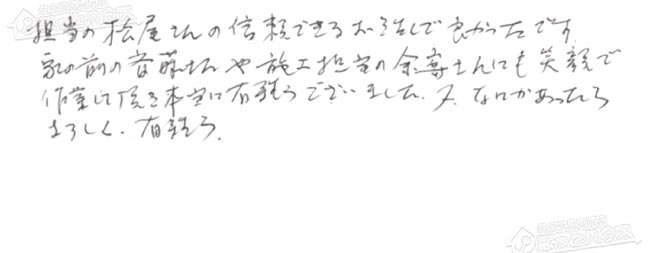 担当の松尾さんの信頼できるお話しで良かったです
家の前の首藤さんや施工担当の余喜さんにも笑顔で
作業して頂き本当に有難うございました。又、なにかあったら
よろしく。有難う。